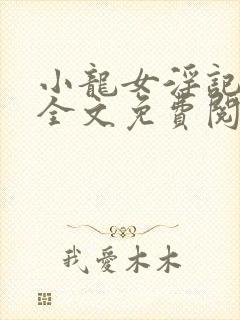 小龍女淫記
全文免費閱
我愛木木